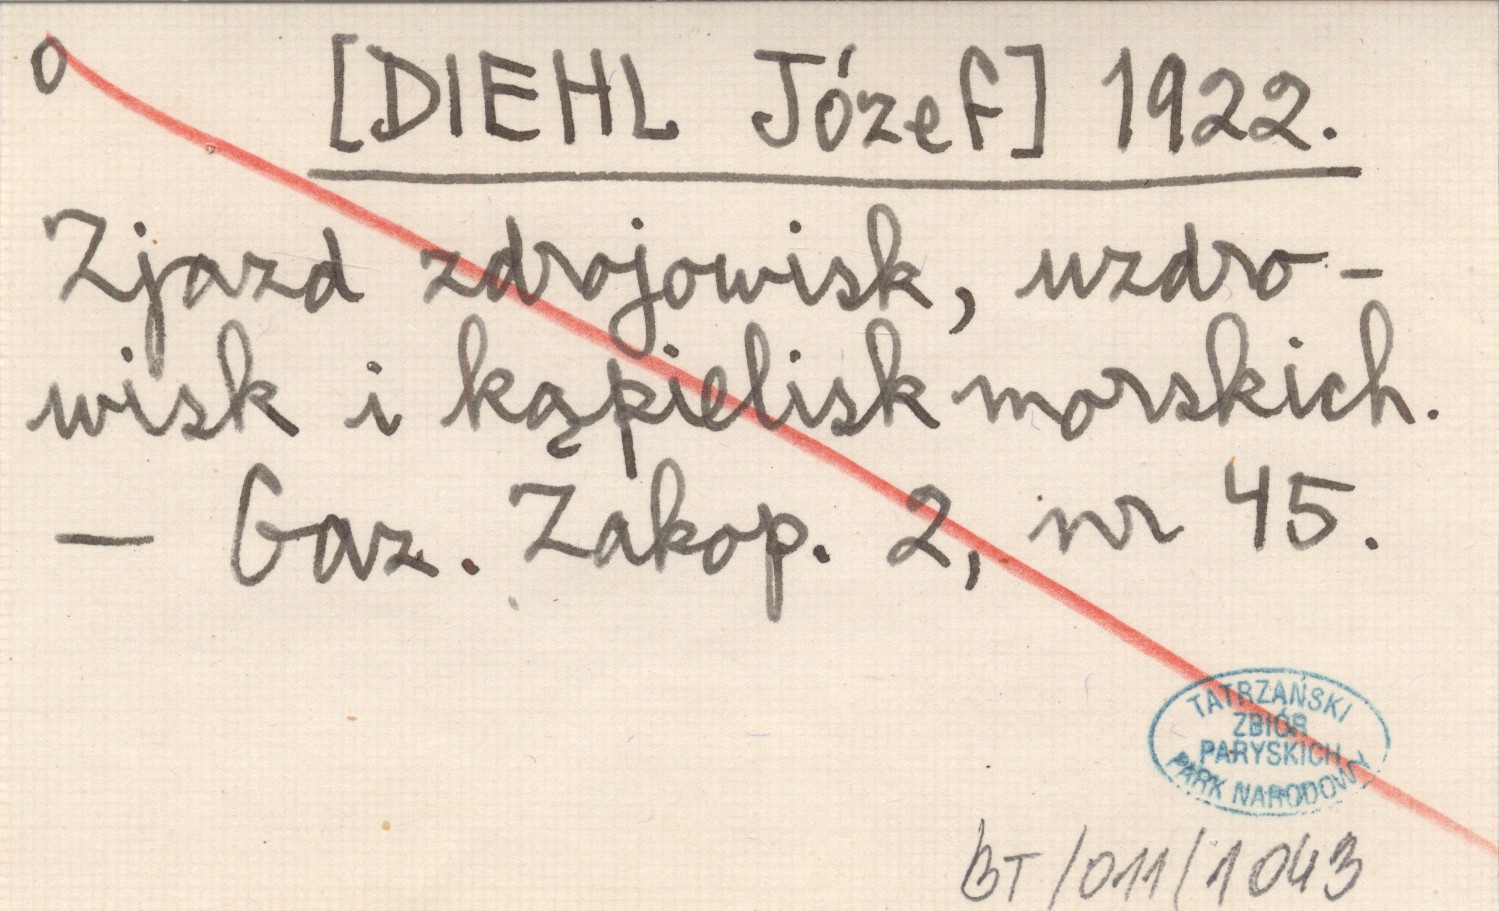 0 [DIEHL Józef] 1922.
Zjazd zdrojowisk, uzdro-
wisk i kąpielisk morskich.
— Gaz. Zakop. 2, nr 45.
TATRZAŃSKI
ZBIÓR
PARYSKICH
PARK NARODOWY
BT/011/1043